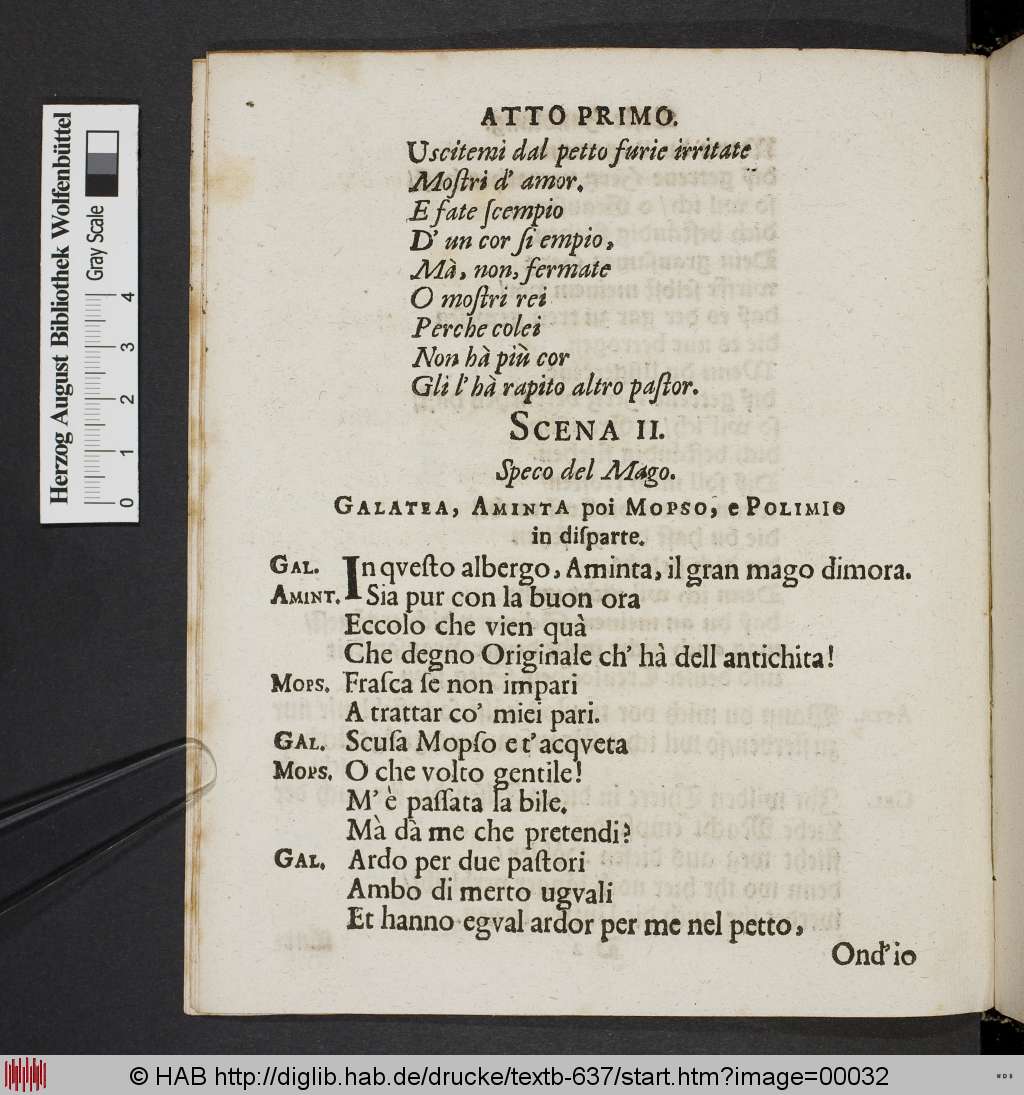 ATTO PRIMO.
Uscitemi dal petto furie irritate
Moſtri d' amor.
E fate ſcempio
D' un cor ſi empio,
Mà, non, fermate
O moſtri rei
Perche colei
Non hà più cor
Gli l' hà rapito altro paſtor.
SCENA II.
Speco del Mago.
GALATEA, AMINTA poi MOPSO, e POLIMIO
in diſparte.
GAL. In qveſto albergo, Aminta, il gran mago dimora.
AMINT. Sia pur con la buon ora
Eccolo che vien quà
Che degno Originale ch' hà dell antichita!
MOPS. Fraſca ſe non impari
A trattar co' miei pari.
GAL. Scuſa Mopſo e t' acqveta
MOPS. O che volto gentile!
M' è paſſata la bile.
Mà da me che pretendi?
GAL. Ardo per due paſtori
Ambo di merto ugvali
Et hanno egval ardor per me nel petto,
Ond' io
Herzog August Bibliothek Wolfenbüttel
Gray Scale
0 1 2 3 4
© HAB http://diglib.hab.de/drucke/textb-637/start.htm?image=00032